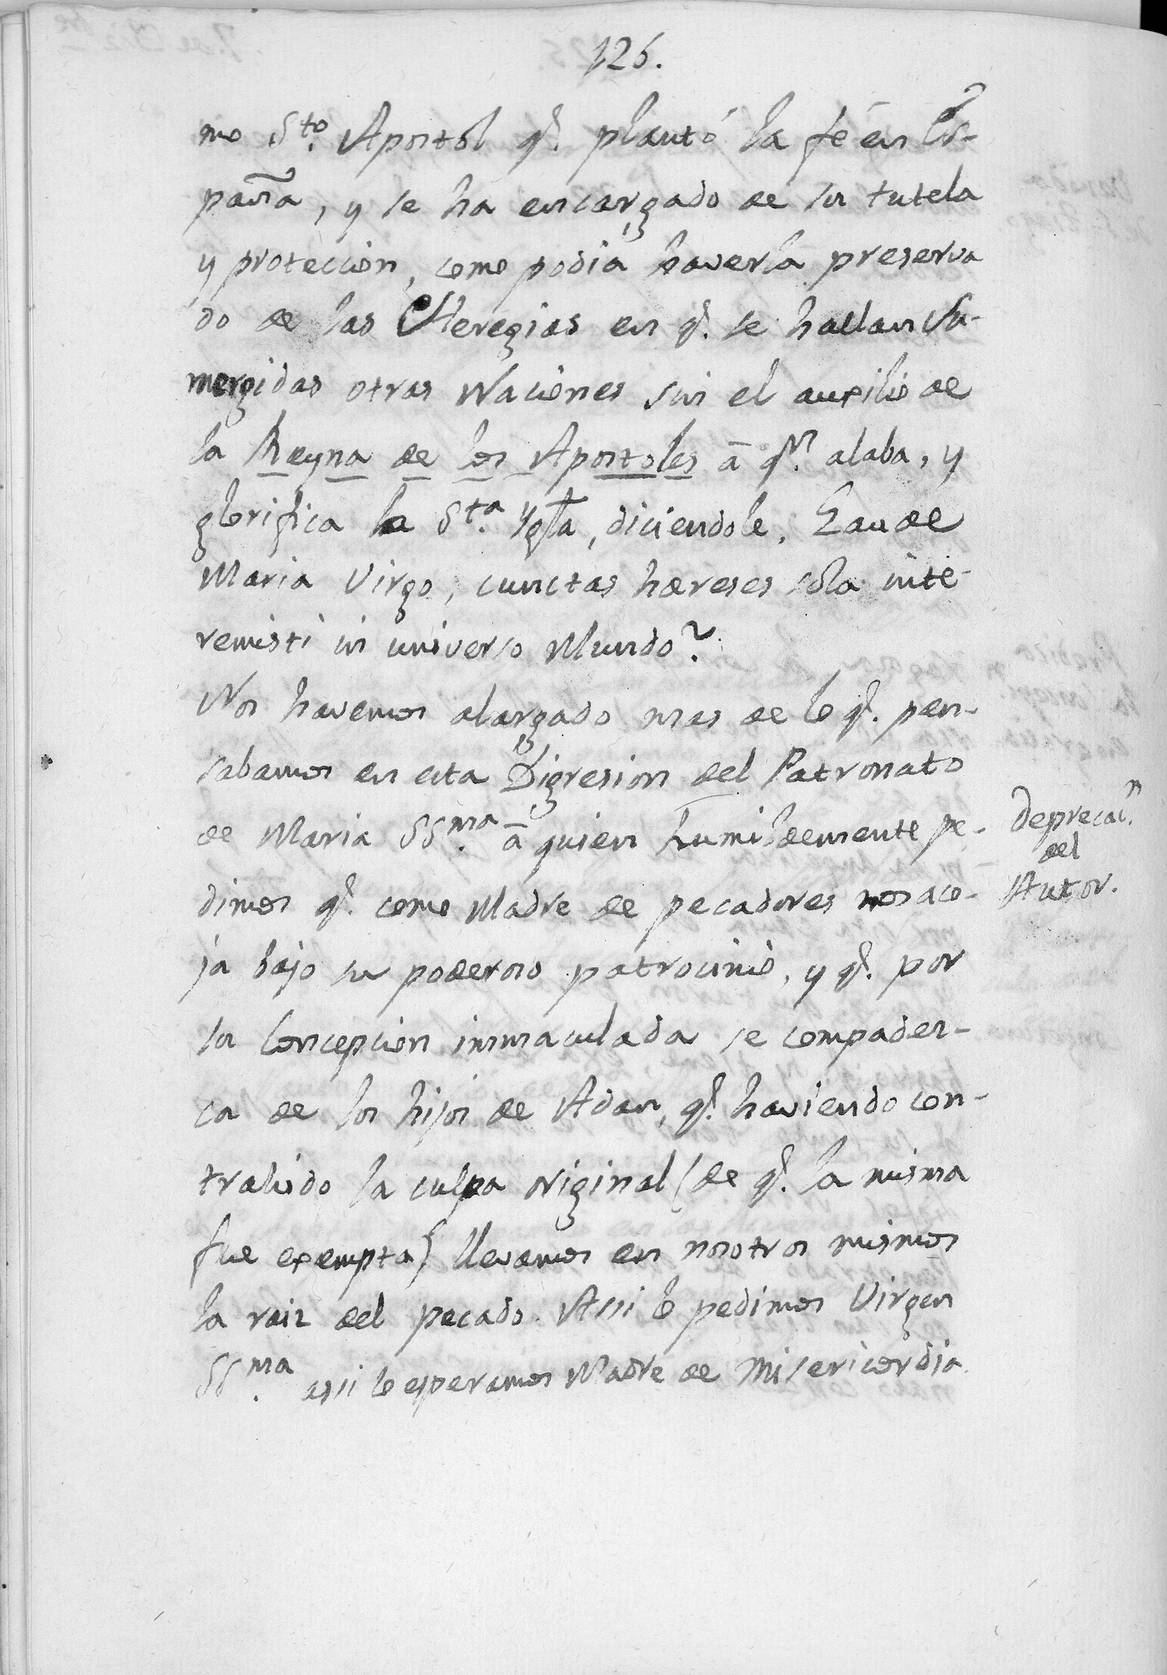 126.
mo Sto. Apostol q. plantó la fé en Es-
paña, y se ha encargado de su tutela
y proteccion, como podia haverla preserva
do de las Heregias en q. se hallan su-
mergidas otras Naciones sin el auxilio de
la Reyna de los Apostoles â qn. alaba, y
glorifica la Sta. Yglã, diciendole, Gaude
Maria Virgo, cunctas hæreses sola inte-
remisti in universo Mundo?
Nos havemos alargado mas de lo q. pen-
sabamos en esta Digresion del Patronato
de Maria SSma. â quien humildemente pe-
dimos q. como Madre de pecadores nos aco-
ja bajo su poderoso patrocinio, y q. por
su Concepcion inmaculada se compadez-
ca de los hijos de Adan, q. haviendo con-
trahido la culpa original (de q. la misma
fue exempta) llevamos en nosotros mismos
la raiz del pecado. Assi lo pedimos Virgen
SSma. assi lo esperamos Madre de Misericordia
Deprecacn.
del
Autor.